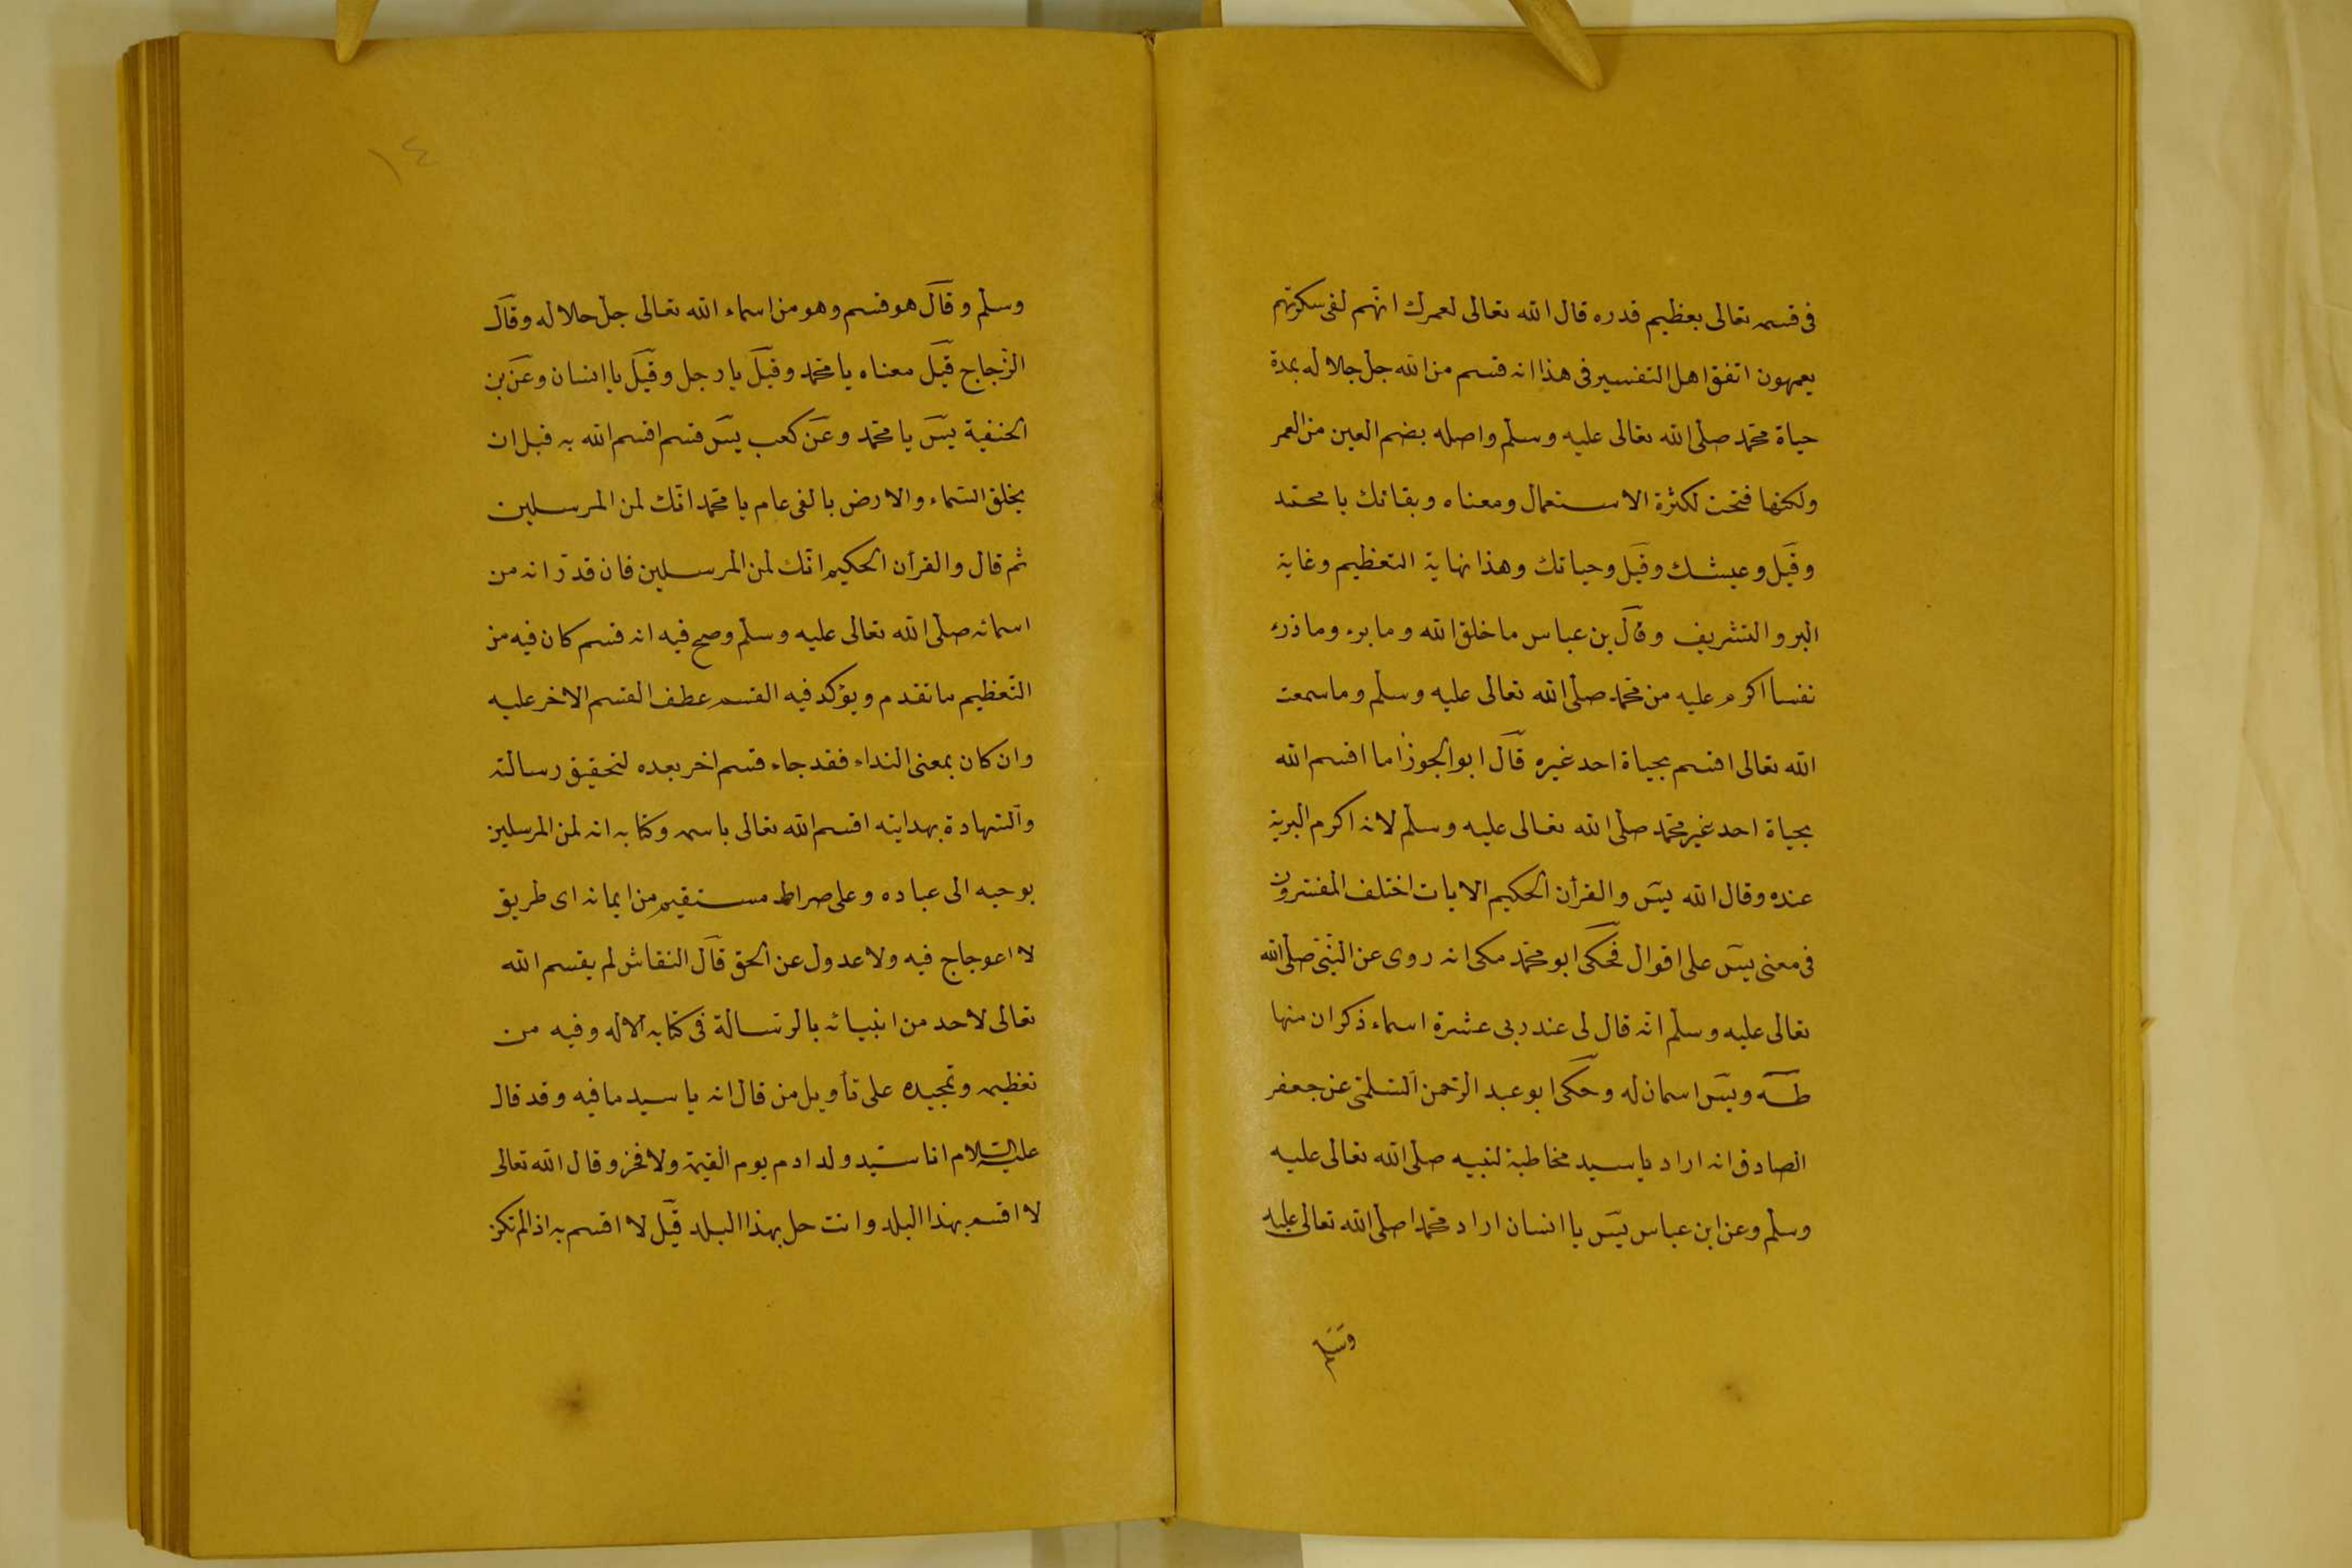 فى قسمه تعالى بعظيم قدره قال الله تعالى لعمرك انهم لفى سكرتهم
يعمهون اتفق اهل التفسير فى هذا انه قسم من الله جل جلاله بمدة
حياة محمد صلى الله تعالى عليه وسلم واصله بضم العين من العمر
ولكنها فتحت لكثرة الاستعمال ومعناه وبقائك يا محمد
وقيل وعيشك وقيل وحياتك وهذا نهاية التعظيم وغاية
البر والتشريف وقال بن عباس ما خلق الله وما برء وما ذرء
نفسا اكرم عليه من محمد صلى الله تعالى عليه وسلم وما سمعت
الله تعالى اقسم بحياة احد غيره قال ابو الجوزا ما اقسم الله
بحياة احد غير محمد صلى الله تعالى عليه وسلم لانه اكرم البرية
عنده وقال الله يس والقرأن الحكيم الايات اختلف المفسرون
فى معنى يس على اقوال فحكى ابو محمد مكى انه روى عن النبى صلى الله
تعالى عليه وسلم انه قال لى عند ربى عشرة اسماء ذكر ان منها
طه ويس اسمان له وحكى ابو عبد الرحمن السلمى عن جعفر
الصادق انه اراد يا سيد مخاطبة لنبيه صلى الله تعالى عليه
وسلم وعن ابن عباس يس يا انسان اراد محمدا صلى الله تعالى عليه
وسلم
١٤
وسلم وقال هو قسم وهو من اسماء الله تعالى جل جلاله وقال
الزجاج قيل معناه يا محمد وقيل يا رجل وقيل يا انسان وعن بن
الحنفية يس يا محمد وعن كعب يس قسم اقسم الله به قبل ان
يخلق السماء والارض بالفى عام يا محمد انك لمن المرسلين
ثم قال والقرأن الحكيم انك لمن المرسلين فان قدر انه من
اسمائه صلى الله تعالى عليه وسلم وصح فيه انه قسم كان فيه من
التعظيم ما تقدم ويؤكد فيه القسم عطف القسم الاخر عليه
وان كان بمعنى النداء فقد جاء قسم اخر بعده لتحقيق رسالته
والشهادة بهدايته اقسم الله تعالى باسمه وكتابه انه لمن المرسلين
بوحيه الى عباده وعلى صراط مستقيم من ايمانه اى طريق
لا اعوجاج فيه ولا عدول عن الحق قال النقاش لم يقسم الله
تعالى لاحد من انبيائه بالرسالة فى كتابه الا له وفيه من
تعظيمه وتمجيده على تأويل من قال انه يا سيد ما فيه وقد قال
عليه السلام انا سيد ولد ادم يوم القيمة ولا فخر وقال الله تعالى
لا اقسم بهذا البلد وانت حل بهذا البلد قيل لا اقسم به اذا لم تكن